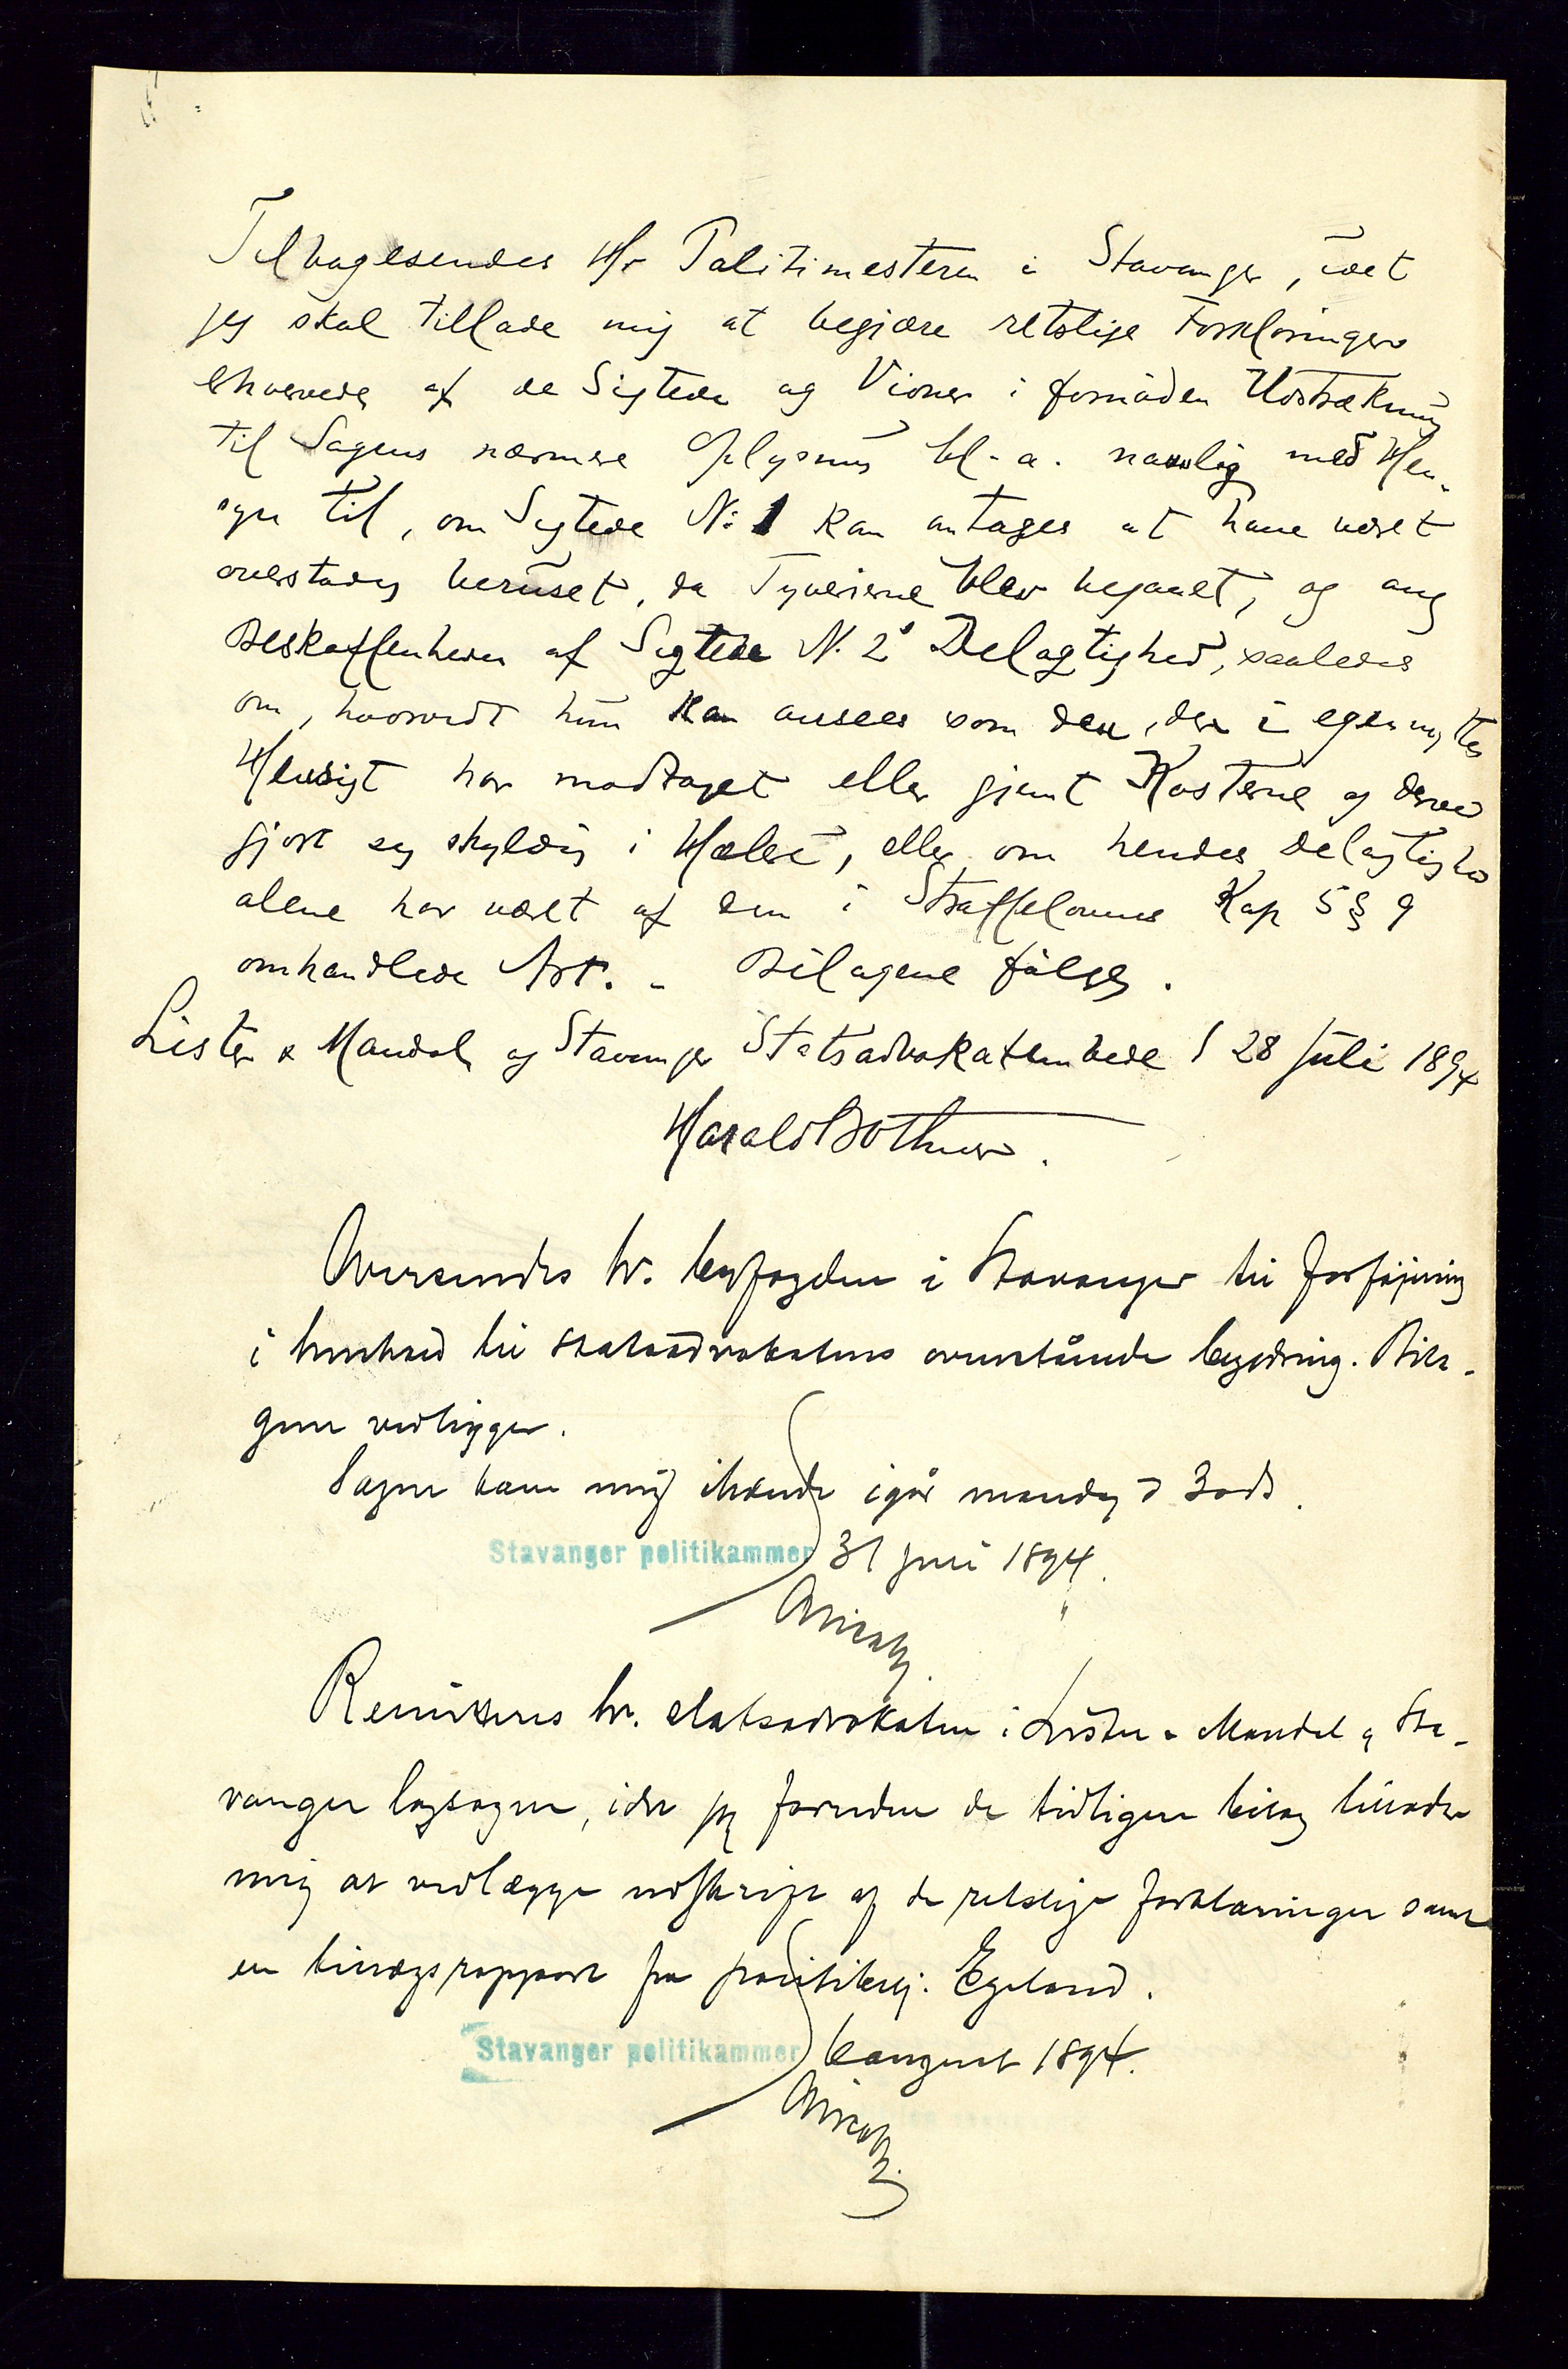 Tilbagesendes Hr Politimesteren i Stavanger, idet
jeg skal tillade mig at begjære retslige Forklaringer
erhvervede af de Sigtede og Vidner i fornøden Udstrækning
til Sagens nærmere Oplysning bl. a. navnlig med Hen-
syn til, om Sigtede No 1 kan antages at have været
overstadig beruset, da Tyverierne blev begaaet, og ang
Beskaffenheden af Sigtede N. 2s Delagtighed, saaledes
om, hvorvidt hun kan ansees som den, der i egennyttig
Hensigt har modtaget eller gjemt Kosterne og derved
gjort sig skyldig i Hæleri, eller om hendes Delagtighed
alene har været af den i Straffelovens Kap 5 § 9
omhandlede Art. - Bilagene følger.
Lister & Mandals og Stavanger Statsadvokatembede d 28 Juli 1894
Harald Bothner.
Oversendes hr. byfogden i Stavanger til forføjning
i henhold til statsadvokatens ovenstående begjæring. Bila-
gene vedligger.
Sagen kom mig ihænde igår mandag d 30 ds.
Stavanger politikammer 31 juli 1894.
Remitteres hr. statsadvokaten i Lister & Mandal og Sta-
vanger lagsogn, idet jeg foruden de tidligere bilag tillader
mig at vedlægge udskrift af de retslige forklaringer samt
en tillægsrapport fra politibetj. Egeland.
Stavanger politikammer 6 august 1894.